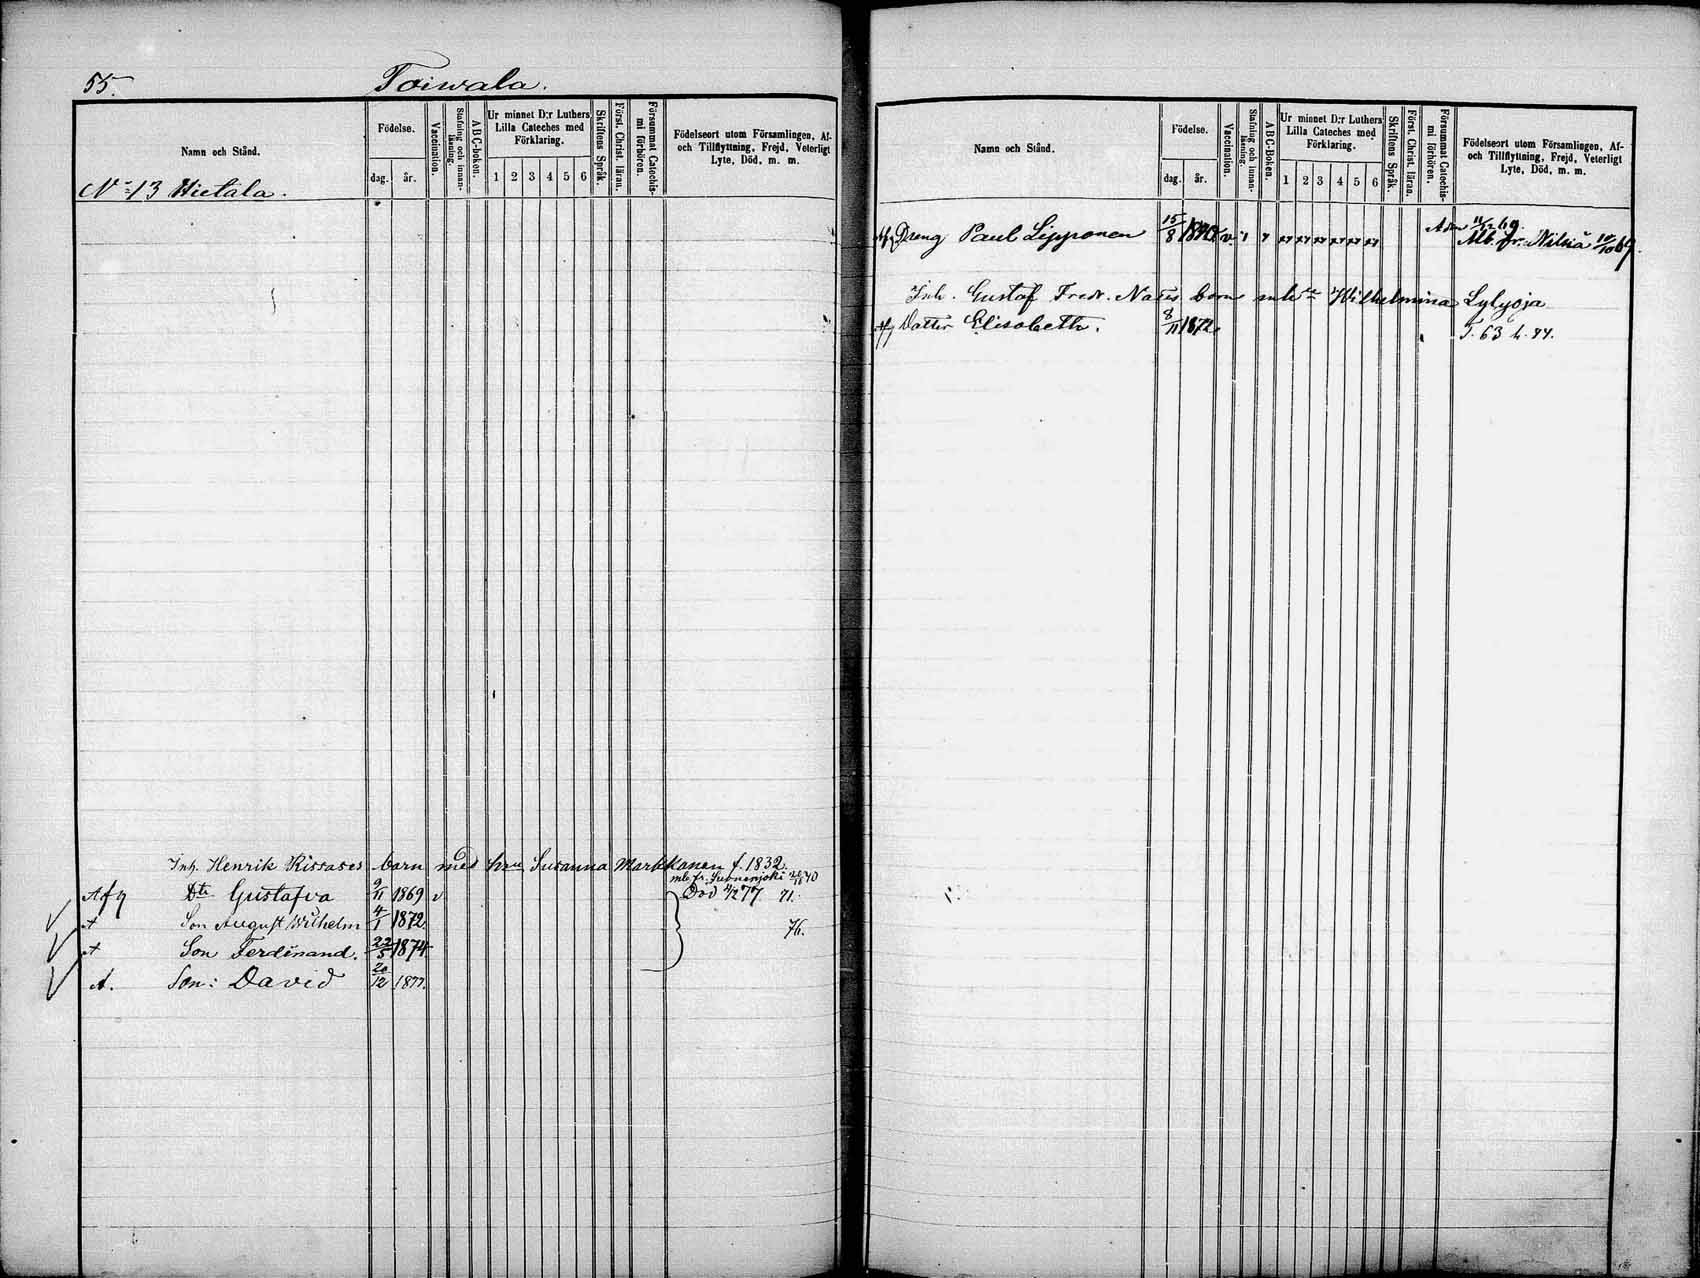 55.
Toiwala.
Namn och Stånd.
Födelse.
dag.
år.
Vaccination.
Stafning och innanläsning.
ABC-boken.
Ur minnet D:r Luthers
Lilla Cateches med
Förklaring.
1 2 3 4 5 6
Skriftens Språk.
Först. Christ. läran.
Försummat Catechismi förhören.
Födelseort utom Församlingen, Af-
och Tillflyttning, Frejd, Veterligt
Lyte, Död, m. m.
No 13 Hietala.
Inh. Henrik Rissases barn med hru Susanna Markkanen f. 1832.
mb. fr. Suonenjoki
Afg Dtr Gustafva 9/11 1869 v Död 77 71.
Son August Wilhelm 4/1 1872. 76.
Son Ferdinand. 22/5 1874.
A. Son: David 20/12 1877.
Namn och Stånd.
Födelse.
dag.
år.
Vaccination.
Stafning och innanläsning.
ABC-Boken.
Ur minnet D:r Luthers
Lilla Cateches med
Förklaring.
1 2 3 4 5 6
Skriftens Språk.
Först. Christ. läran.
Försummat Catechismi förhören.
Födelseort utom Församlingen, Af-
och Tillflyttning, Frejd, Veterligt
Lyte, Död, m. m.
Afg Dreng Paul Lipponen 15/8 v 69.
Mb. fr. Nilsiä 69.
Inh. Gustaf Fredr. barn Wilhelmina Lylyoja
Afg Dotter Elisabeth. 8/11 1872. T. 63 h.